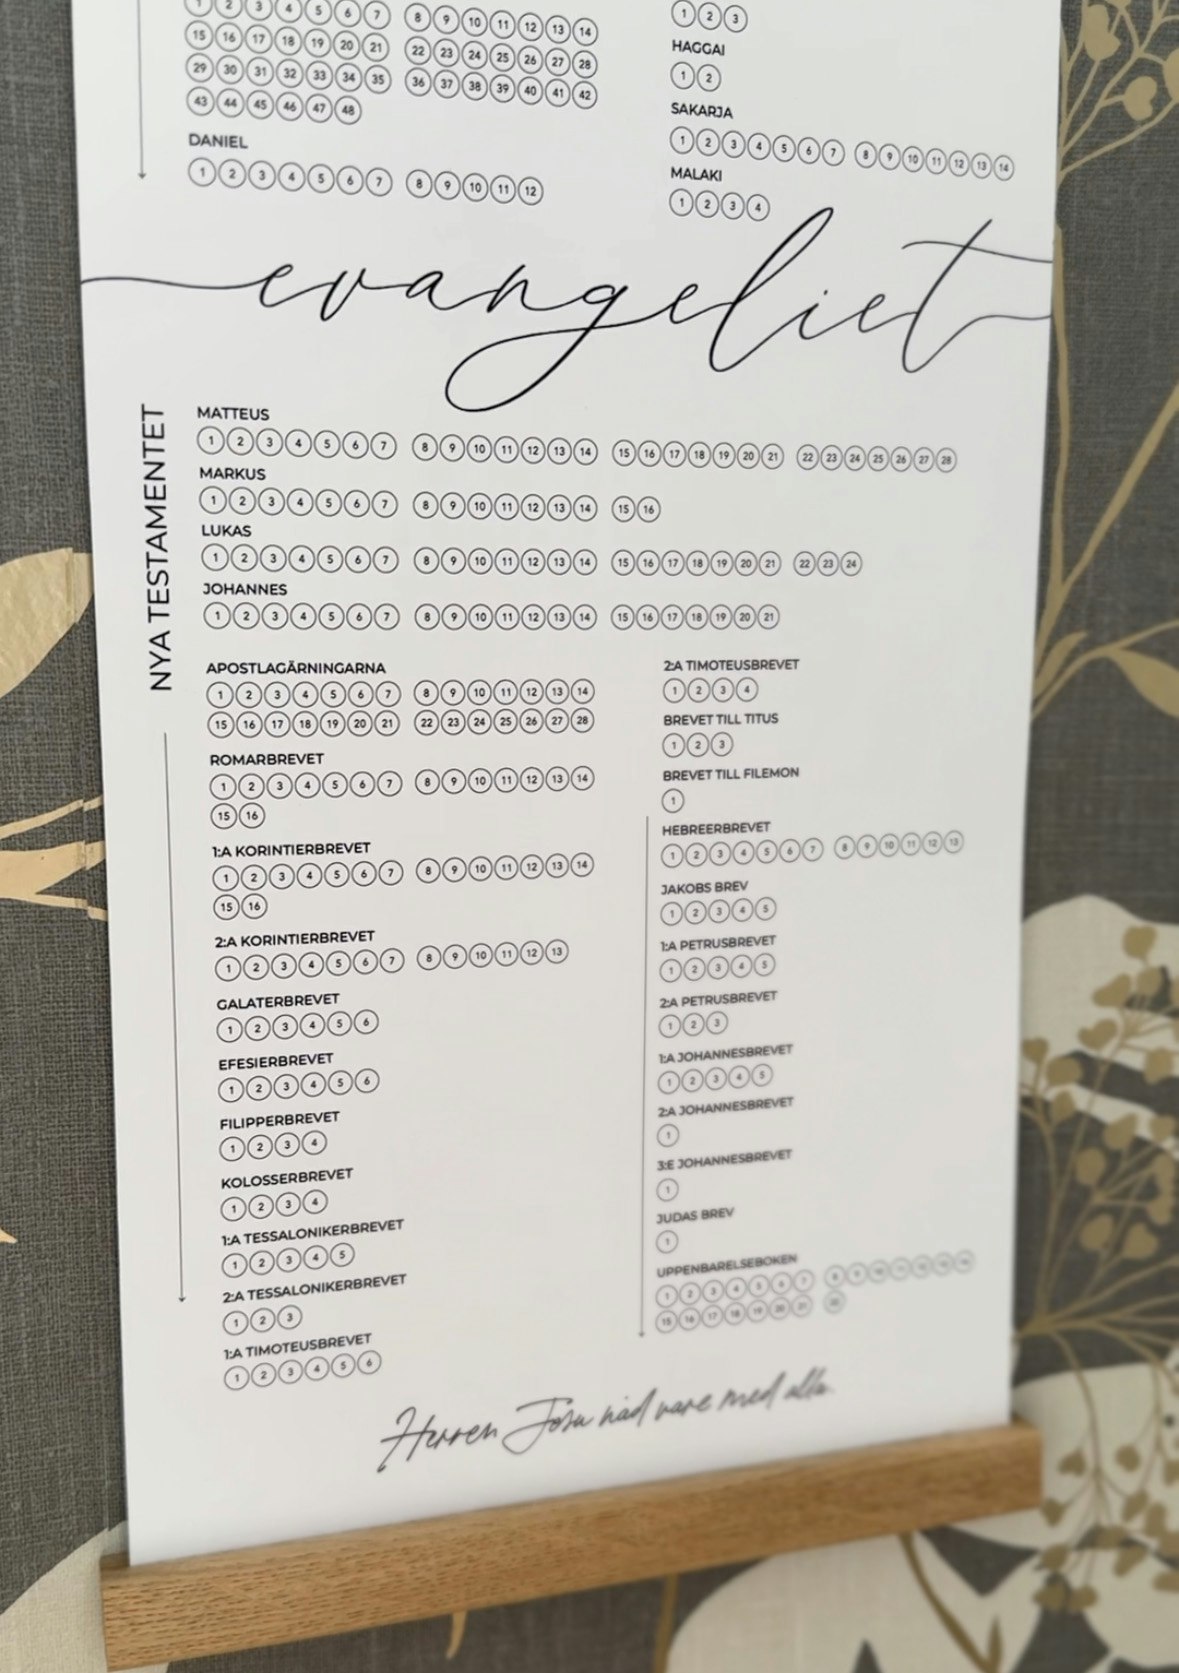 1 2 3 4 5 6 7 8 9 10 11 12 13 14
15 16 17 18 19 20 21 22 23 24 25 26 27 28
29 30 31 32 33 34 35 36 37 38 39 40 41 42
43 44 45 46 47 48
DANIEL
1 2 3 4 5 6 7 8 9 10 11 12
1 2 3
HAGGAI
1 2
SAKARJA
1 2 3 4 5 6 7 8 9 10 11 12 13 14
MALAKI
1 2 3 4
evangeliet
NYA TESTAMENTET
MATTEUS
1 2 3 4 5 6 7 8 9 10 11 12 13 14 15 16 17 18 19 20 21 22 23 24 25 26 27 28
MARKUS
1 2 3 4 5 6 7 8 9 10 11 12 13 14 15 16
LUKAS
1 2 3 4 5 6 7 8 9 10 11 12 13 14 15 16 17 18 19 20 21 22 23 24
JOHANNES
1 2 3 4 5 6 7 8 9 10 11 12 13 14 15 16 17 18 19 20 21
APOSTLAGÄRNINGARNA
1 2 3 4 5 6 7 8 9 10 11 12 13 14
15 16 17 18 19 20 21 22 23 24 25 26 27 28
ROMARBREVET
1 2 3 4 5 6 7 8 9 10 11 12 13 14
15 16
1:A KORINTIERBREVET
1 2 3 4 5 6 7 8 9 10 11 12 13 14
15 16
2:A KORINTIERBREVET
1 2 3 4 5 6 7 8 9 10 11 12 13
GALATERBREVET
1 2 3 4 5 6
EFESIERBREVET
1 2 3 4 5 6
FILIPPERBREVET
1 2 3 4
KOLOSSERBREVET
1 2 3 4
1:A TESSALONIKERBREVET
1 2 3 4 5
2:A TESSALONIKERBREVET
1 2 3
1:A TIMOTEUSBREVET
1 2 3 4 5 6
2:A TIMOTEUSBREVET
1 2 3 4
BREVET TILL TITUS
1 2 3
BREVET TILL FILEMON
1
HEBREERBREVET
1 2 3 4 5 6 7 8 9 10 11 12 13
JAKOBS BREV
1 2 3 4 5
1:A PETRUSBREVET
1 2 3 4 5
2:A PETRUSBREVET
1 2 3
1:A JOHANNESBREVET
1 2 3 4 5
2:A JOHANNESBREVET
1
3:E JOHANNESBREVET
1
JUDAS BREV
1
UPPENBARELSEBOKEN
1 2 3 4 5 6 7 8 9 10 11 12 13 14
15 16 17 18 19 20 21 22
Herren Jesu nåd vare med alla.